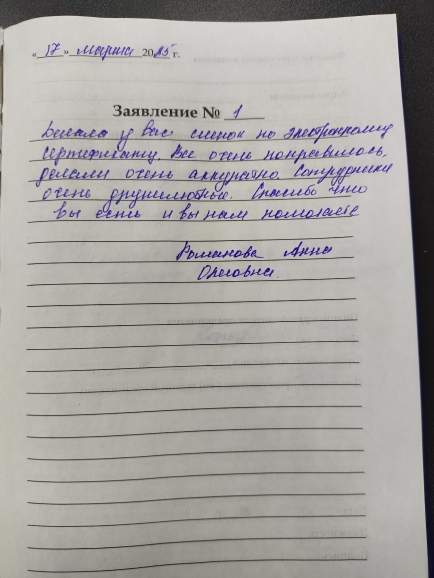 « 17 » марта 2025 г.
Заявление № 1
Делала у вас слепок по электронному
сертификату. Все очень понравилось,
делали очень аккуратно. Сотрудники
очень дружелюбные. Спасибо что
вы есть и вы нам помогаете
Романова Анна
Олеговна.